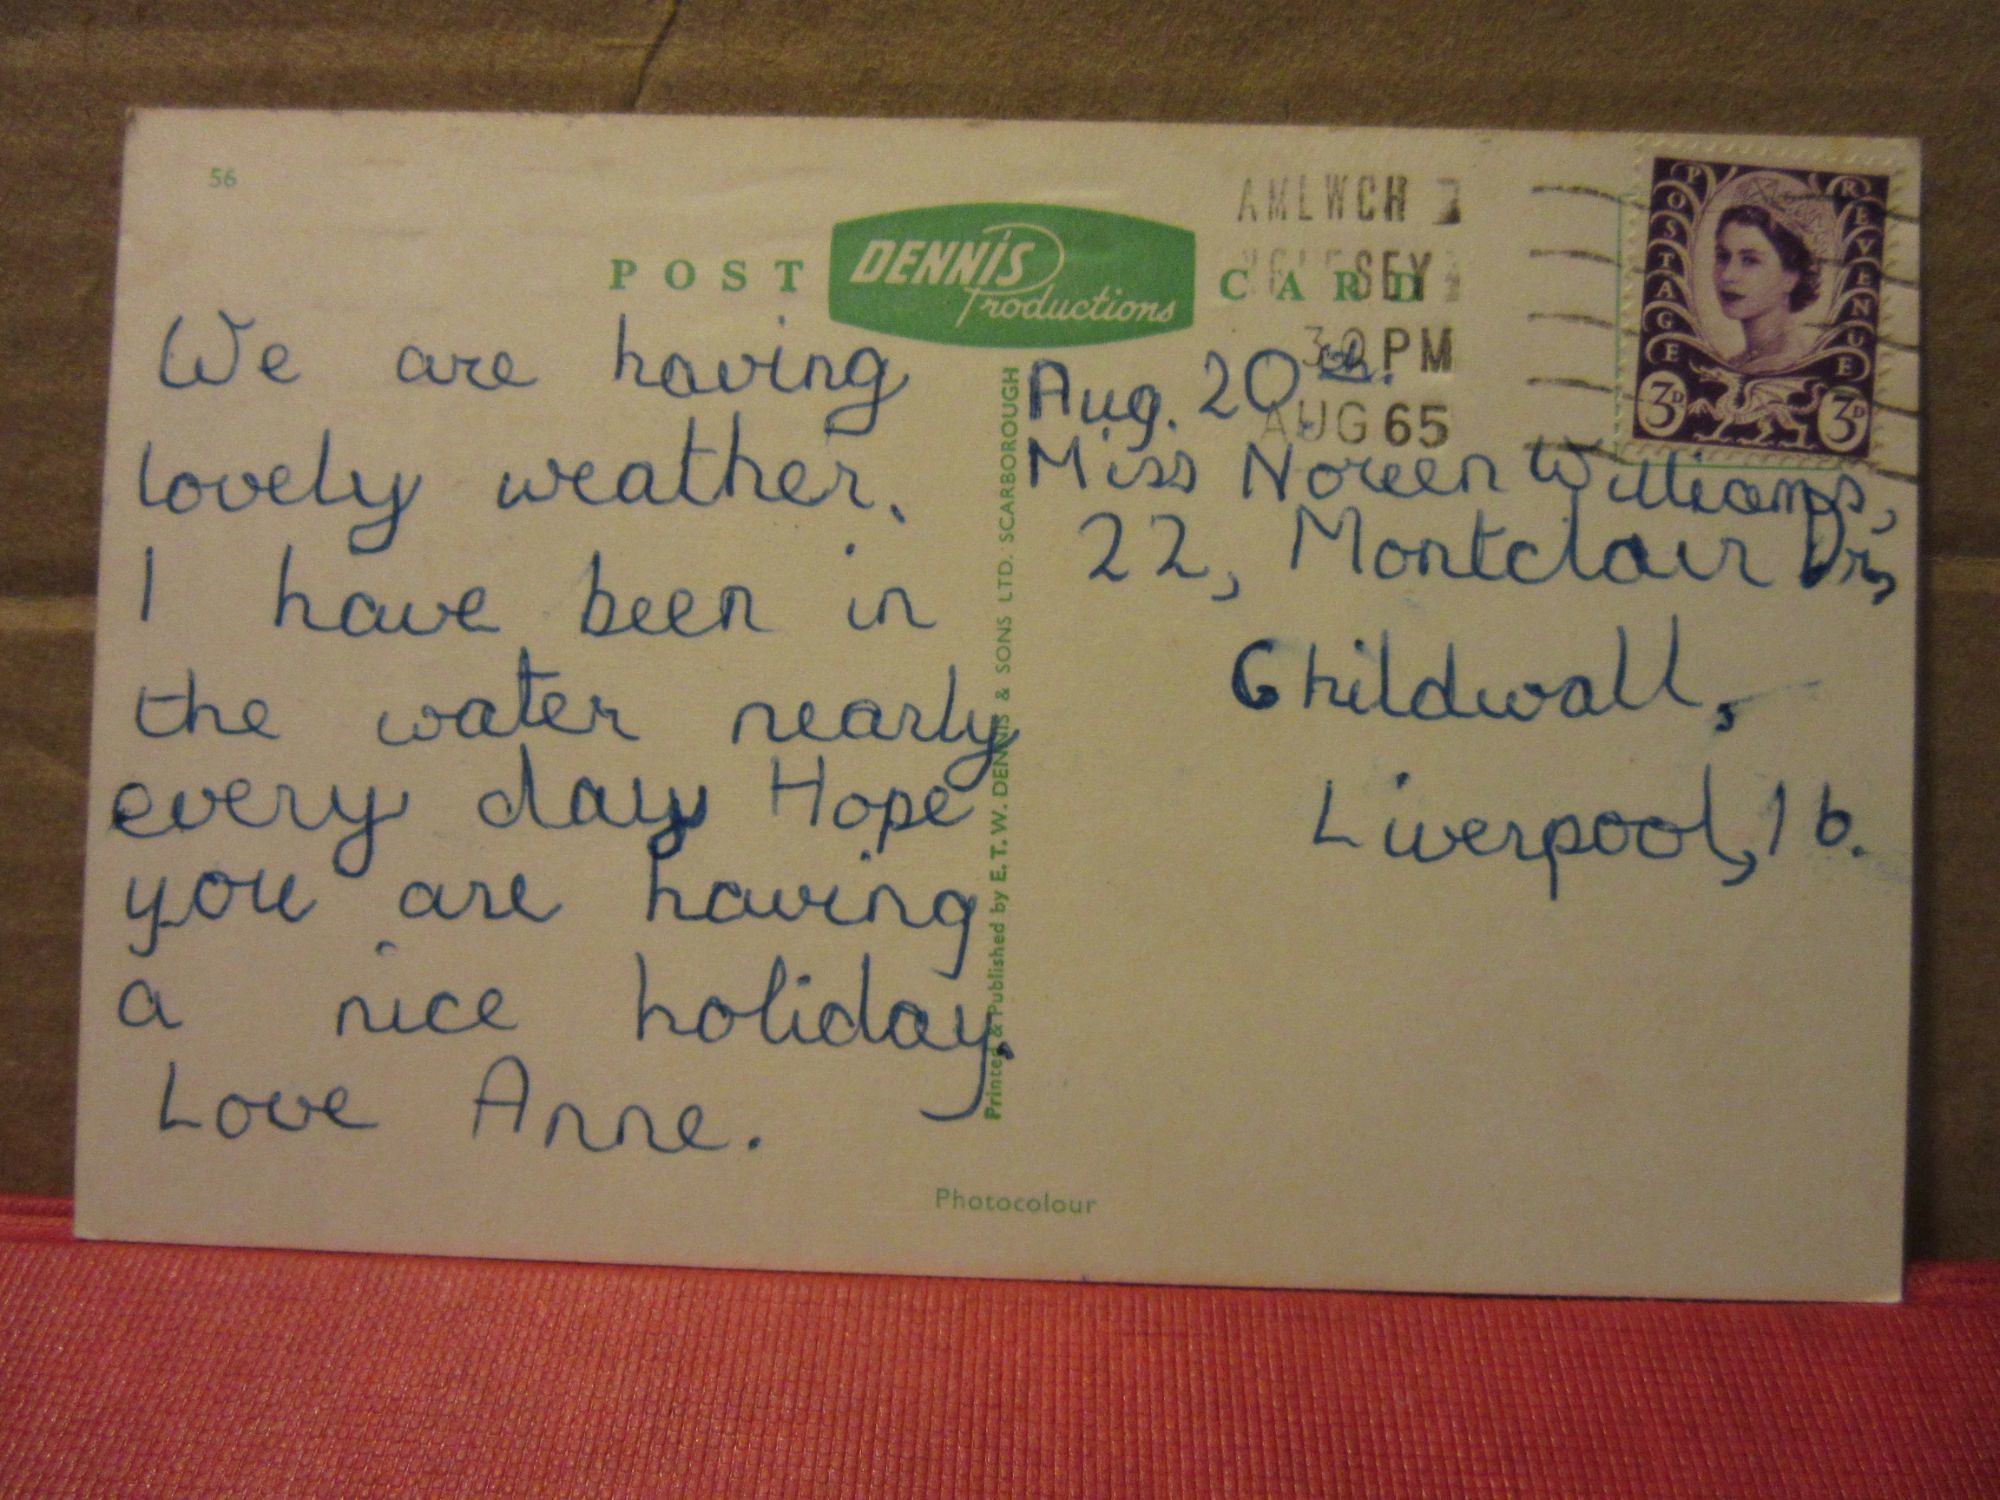 56
POST DENNIS Productions CARD
AMLWCH
SEY
30 PM
AUG 65
POSTAGE REVENUE
3D 3D
We are having
lovely weather.
I have been in
the water nearly
every day Hope
you are having
a nice holiday.
Love Anne.
Printed & Published by E. T. W. DENNIS & SONS LTD. SCARBOROUGH
Aug. 20th.
Miss Noreen Williams,
22, Montclair Dr,
Childwall,
Liverpool, 16.
Photocolour